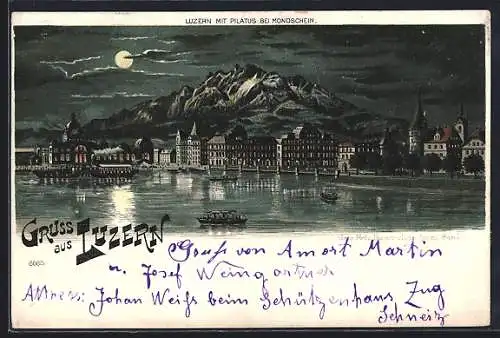 LUZERN MIT PILATUS BEI MONDSCHEIN.
GRUSS
AUS
LUZERN
Gruss von Amort Martin
u. Josef Weingartner
Adress: Johan Weiss beim Schützenhaus, Zug
Schweiz